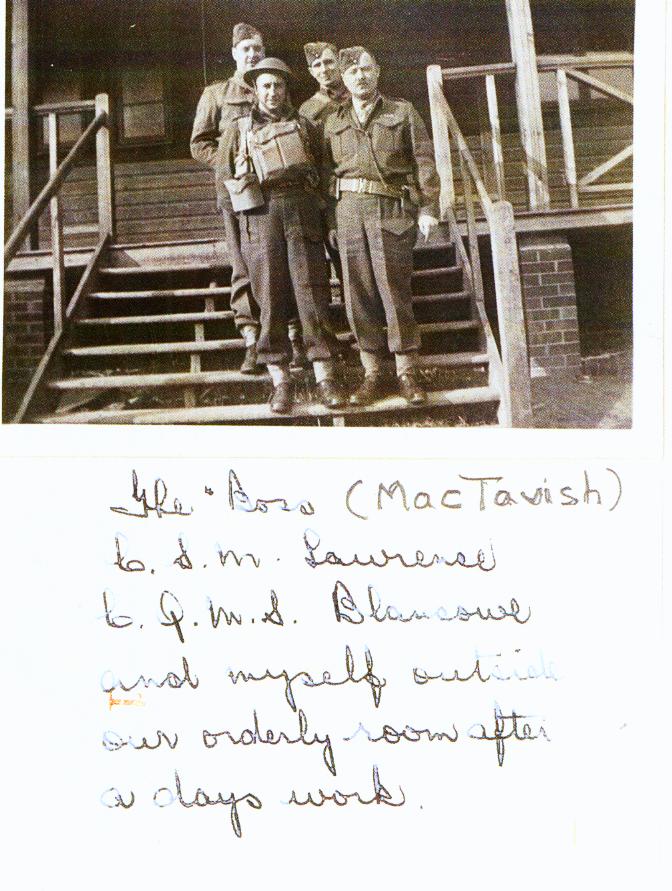 The "Boss (MacTavish)
C. S. M. Lawrence
C. Q. M. S. Blancowe
and myself outside
our orderly room after
a days work.